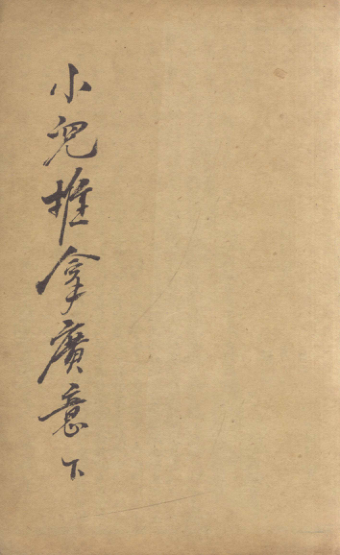 小兒推拿廣意下